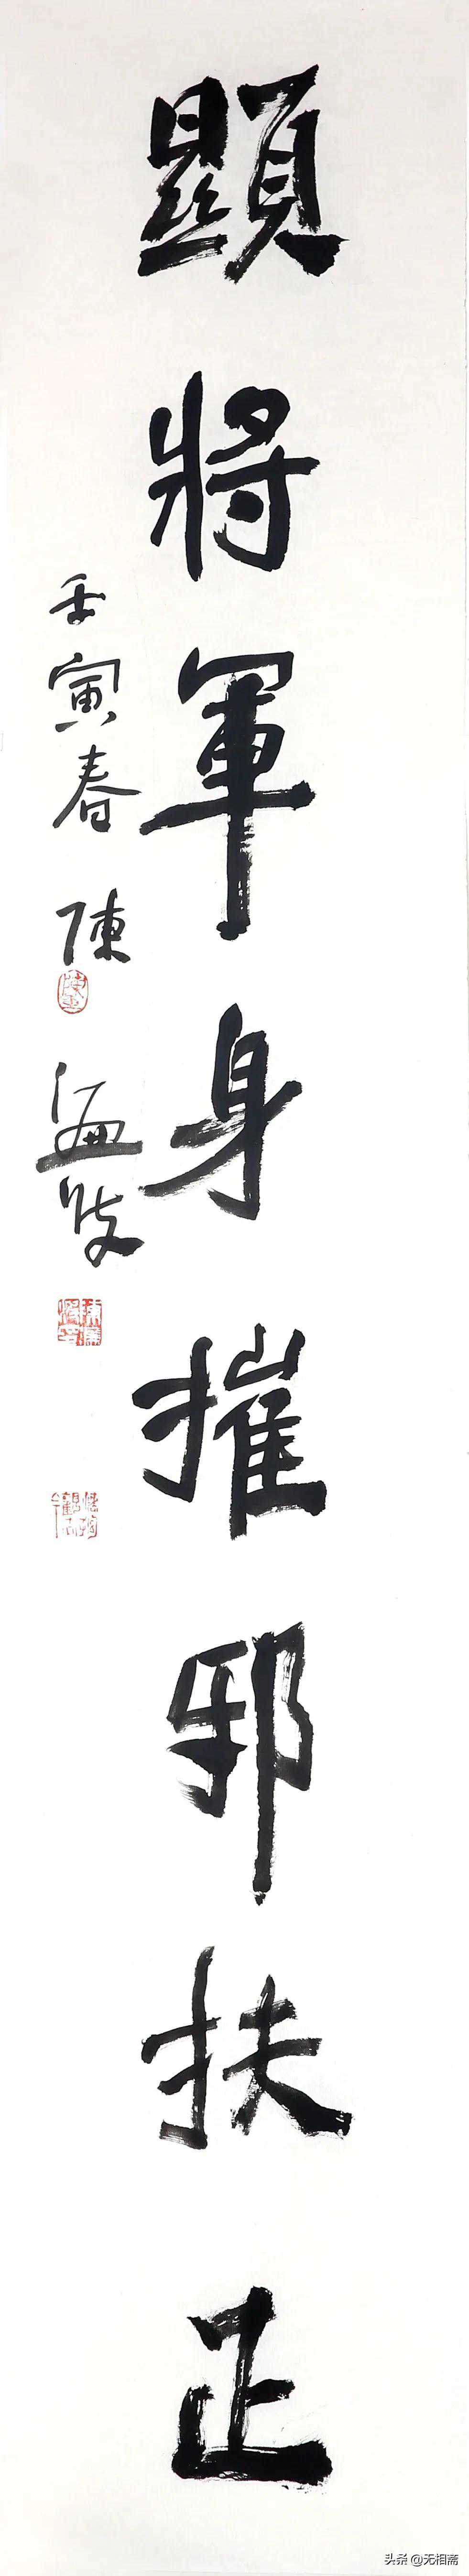 顯將軍身摧邪扶正
壬寅春 陳
头条 @无相斋